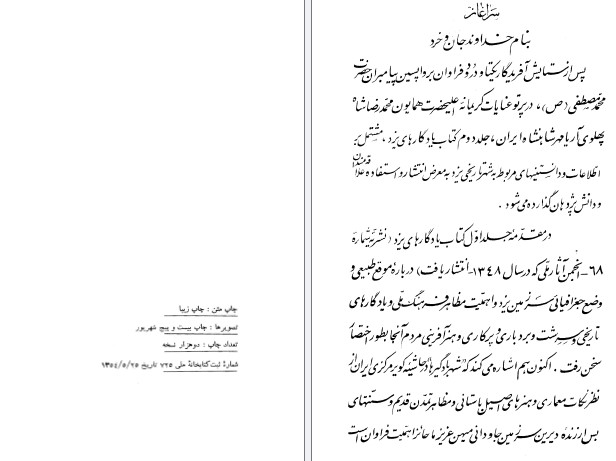 سرآغاز
بنام خداوند جان و خرد
پس از ستایش آفریدگار یکتا و درود فراوان برواپسین پیامبران حضرت
محمد مصطفی (ص)، در پرتو عنایات کریمانهٔ اعلیحضرت همایون محمدرضا شاه
پهلوی آریامهر شاهنشاه ایران، جلد دوم کتاب یادگارهای یزد، مشتمل بر
اطلاعات و دانستنیهای مربوط به شهر تاریخی یزد به معرض انتشار و استفادهٔ علاقمندان
و دانش پژوهان گذارده می‌شود.
در مقدمهٔ جلد اول کتاب یادگارهای یزد (نشریه شمارهٔ
۶۸- انجمن آثار ملی که در سال ۱۳۴۸- انتشار یافت) دربارهٔ موقع طبیعی و
وضع جغرافیائی سرزمین یزد و اهمیت مظاهر فرهنگ ملی و یادگارهای
تاریخی و سرشت و بردباری و پرکاری و هنرآفرینی مردم آنجا بطور اختصار
سخن رفت. اکنون هم اشاره می‌کند که شهر بادگیرها در حاشیهٔ کویر مرکزی ایران از
نظر نکات معماری و هنرهای اصیل باستانی و مظاهر تمدن قدیم و سنتهای
بس ارزندهٔ دیرین سرزمین جاودانی میهن عزیز ما حائز اهمیت فراوان است
چاپ متن : چاپ زیبا
تصویرها : چاپ بیست و پنج شهریور
تعداد چاپ : دوهزار نسخه
شمارهٔ ثبت کتابخانهٔ ملی ۷۲۵ تاریخ ۱۳۵۴/۵/۲۵